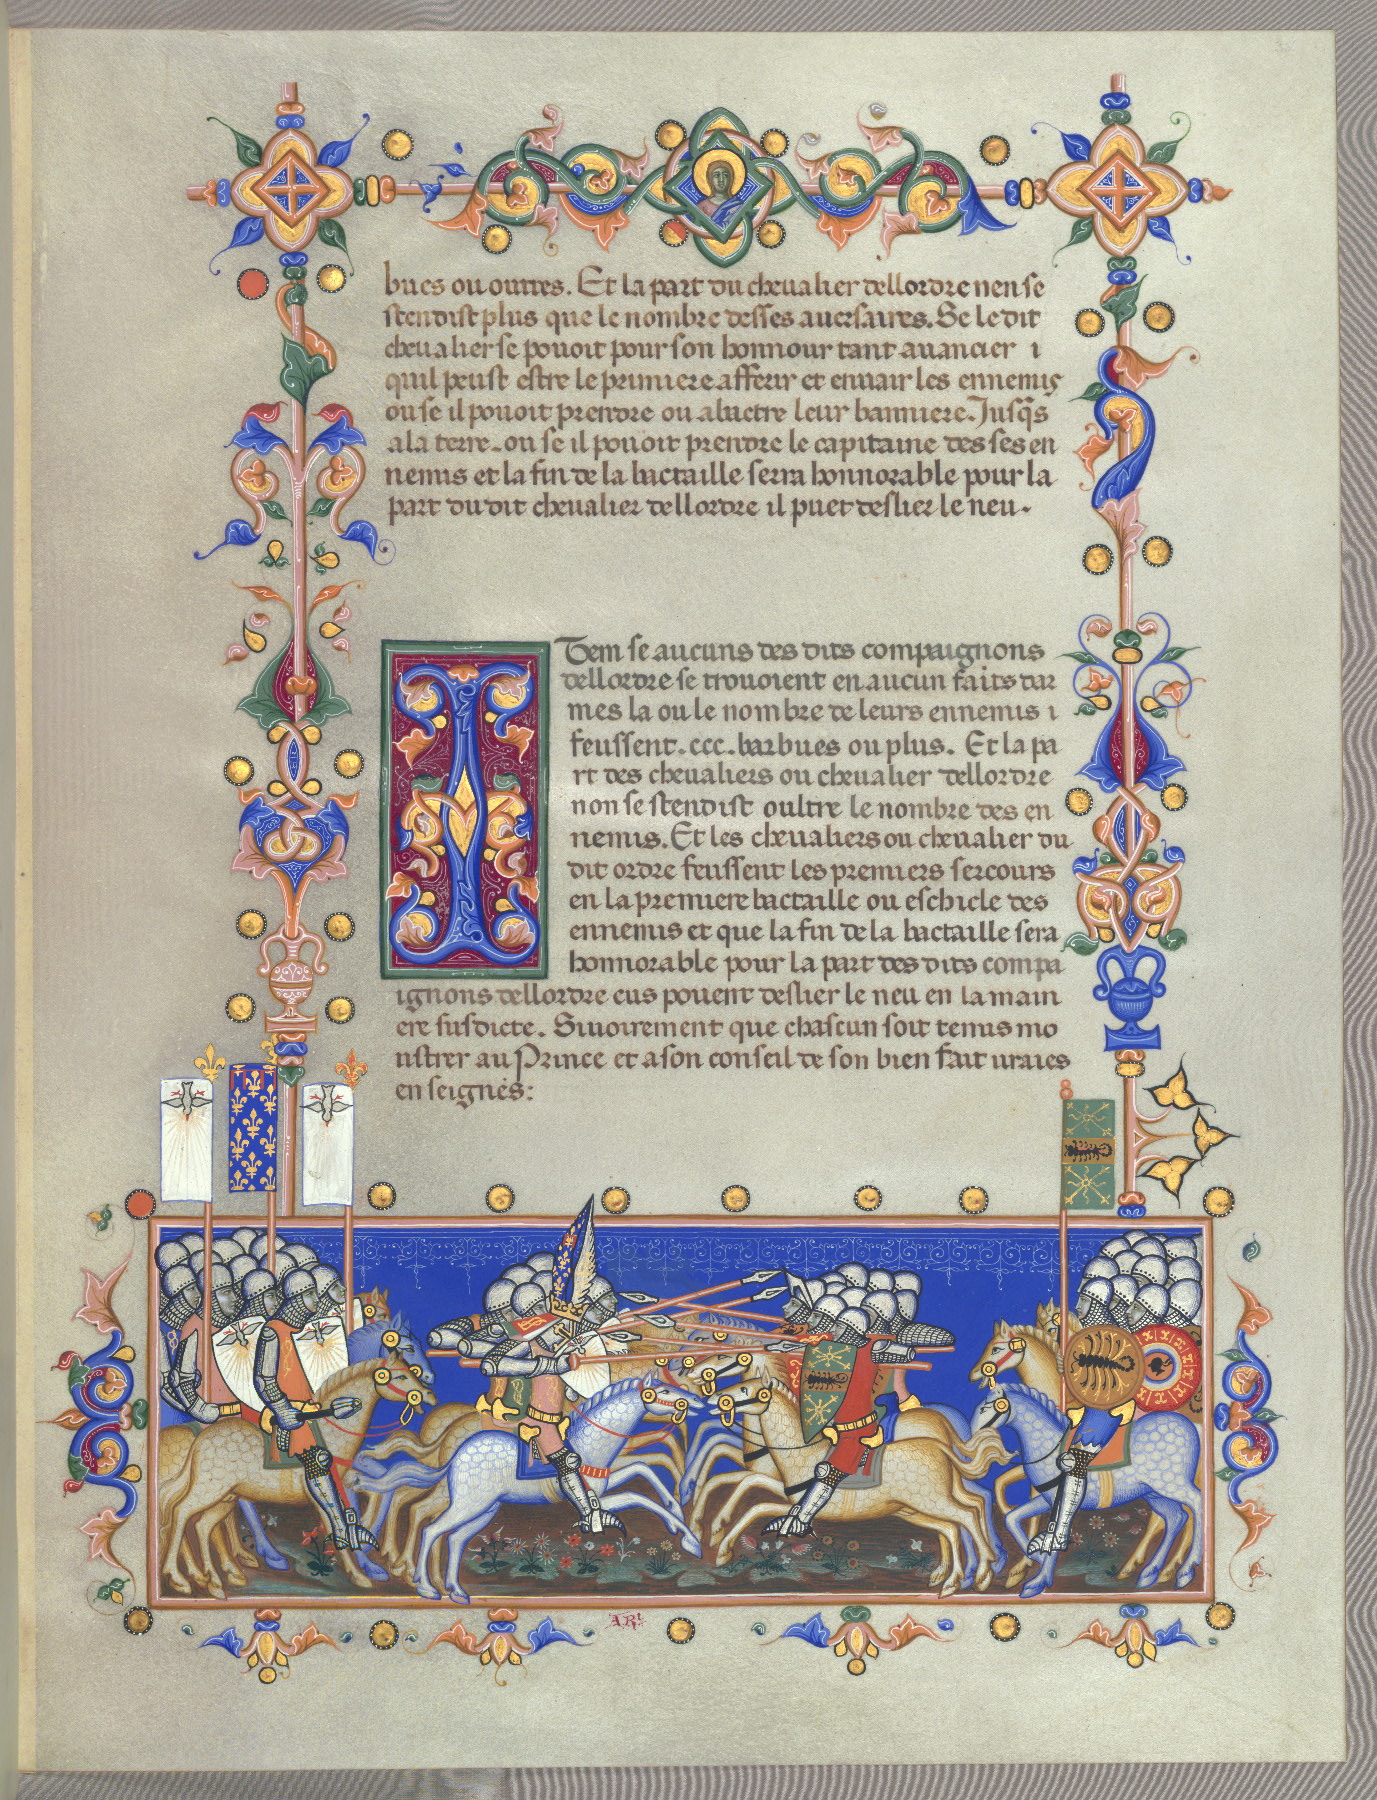 bues ou outtres. Et la part du chevalier dellordre nen se
stendist plus que le nombre desses auersaires. Se le dit
cheualier se pouoit pour son honnour tant auancier i
quil peust estre le primiere afferir et enuair les ennemis
ou se il pouoit prendre ou abactre leur banniere. Jusq̃s
a la terre. ou se il pouoit prendre le capitaine des ses en
nemis et la fin de la bactaille serra honnorable pour la
part du dit cheualier dellordre il puet deslier le neu.
Item se aucuns des dits compaignons
dellordre se trouoient en aucun faits dar
mes la ou le nombre de leurs ennemis i
feussent. ccc. barbues ou plus. Et la pa
rt des cheualiers ou cheualier dellordre
non se stendist oultre le nombre des en
nemis. Et les cheualiers ou cheualier du
dit ordre feussent les premiers sercours
en la premiere bactaille ou eschicle des
ennemis et que la fin de la bactaille sera
honnorable pour la part des dits compa
ignons dellordre eus pouent deslier le neu en la mani
ere susdicte. Siuoirement que chascun soit tenus mo
nstrer au Prince et a son conseil de son bien fait uraies
enseignes:
ARt